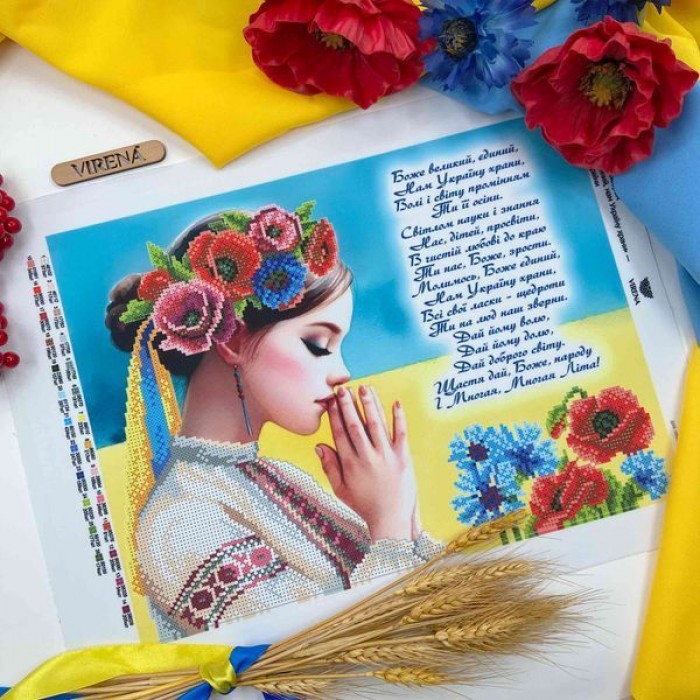 VIRENA
Боже великий, єдиний,
Нам Україну храни,
Волі і світу промінням
Ти її осіни.
Світлом науки і знання
Нас, дітей, просвіти,
В чистій любові до краю
Ти нас, Боже, зрости.
Молимось, Боже єдиний,
Нам Україну храни,
Всі свої ласки - щедроти
Ти на люд наш зверни.
Дай йому волю,
Дай йому долю,
Дай доброго світу.
Щастя дай, Боже, народу
І Многая, Многая Літа!
VIRENA